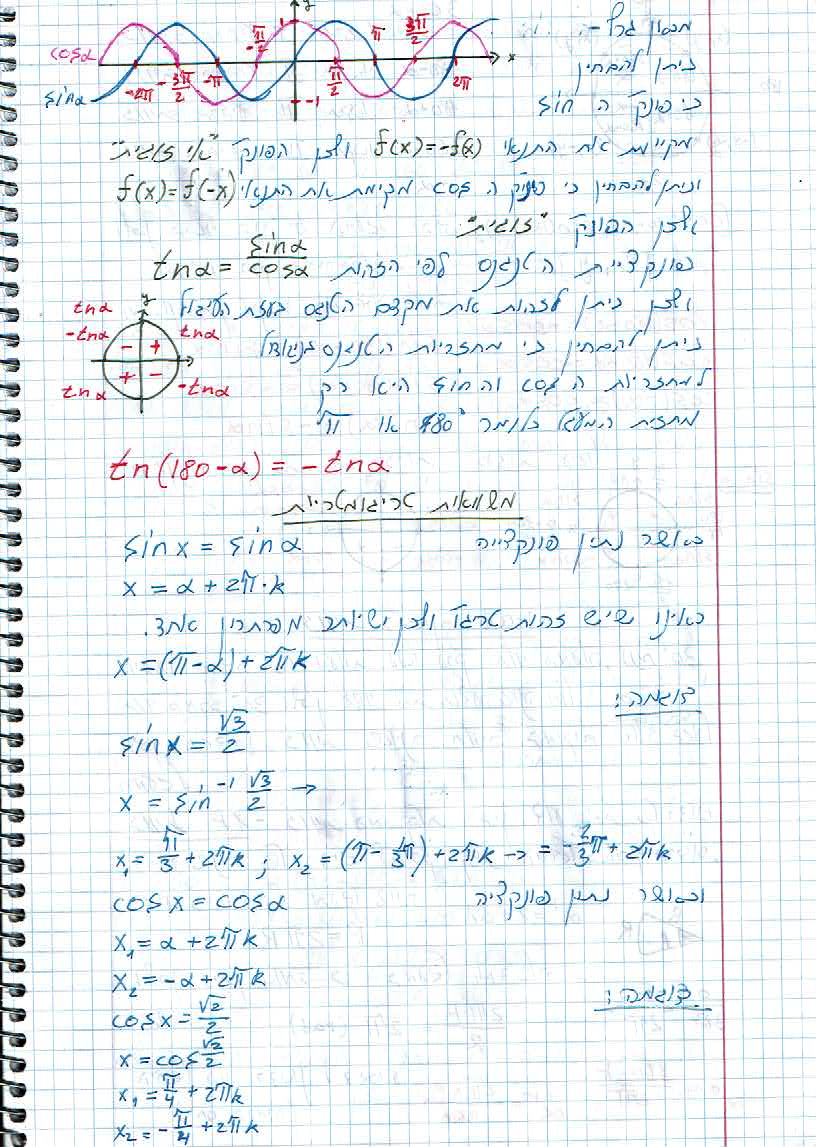 y
x
cosα
sinα
-2π -3π/2 -π -π/2 π/2 π 3π/2 2π
-1
מכאן גרף ה-
ניתן להבחין
כי פונק' ה sin
מקיימת את התנאי f(x)=-f(x) ולכן הפונק' "אי זוגית"
וניתן להבחין כי פונק' ה cos מקימת את התנאי f(x)=f(-x)
ולכן הפונק' "זוגית"
פונקציית הטנגנס לפי הזהות tnα = sinα/cosα
ולכן ניתן לזהות את מקדם הטנגנס בעזרת העיגול
ניתן להבחין כי מחזוריות הטנגנס בניגוד
למחזוריות ה cos וה sin היא רק
מחצית המעגל כלומר 180° או π
y
tnα
-tnα - + tnα
tnα + - -tnα
tn(180-α) = -tnα
משוואות טריגומטריות
כאשר נתון פונקצייה sinx = sinα
x = α + 2π·k
ראינו שיש זהות טריגו' ולכן יש יותר מפתרון אחד.
x = (π-α) + 2πk
דוגמה:
sinx = √3/2
x = sin⁻¹ √3/2 →
x₁ = π/3 + 2πk ; x₂ = (π - 1/3π) + 2πk → = -2/3π + 2πk
וכאשר נתון פונקציה cosx = cosα
x₁ = α + 2πk
x₂ = -α + 2πk
דוגמה:
cosx = √2/2
x = cos √2/2
x₁ = π/4 + 2πk
x₂ = -π/4 + 2πk